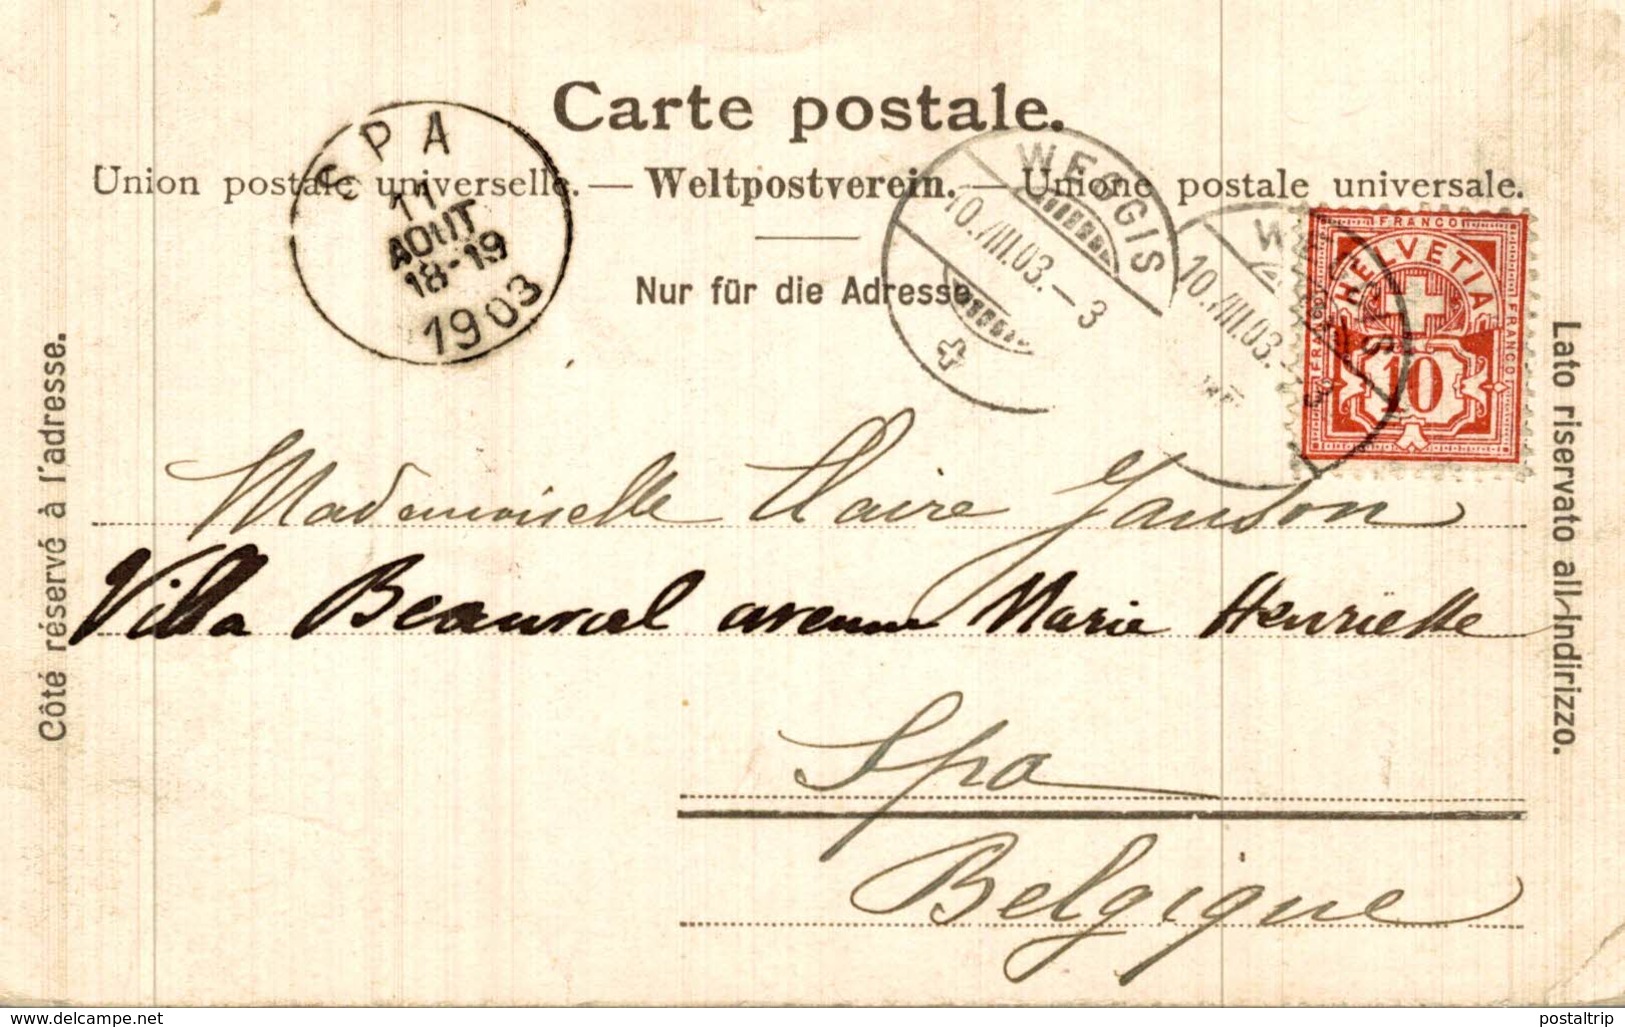 Carte postale.
Union postale universelle. — Weltpostverein. — Unione postale universale.
Nur für die Adresse
SPA
11
AOUT
18-19
1903
WEGGIS
10.VIII.03.–3
10.VIII.03.
FRANCO
HELVETIA
FRANCO
FRANCO
10
Côté réservé à l'adresse.
Lato riservato all'indirizzo.
Mademoiselle Claire Janson
Villa avenue Marie Henriette
Spa
Belgique
www.delcampe.net
postaltrip